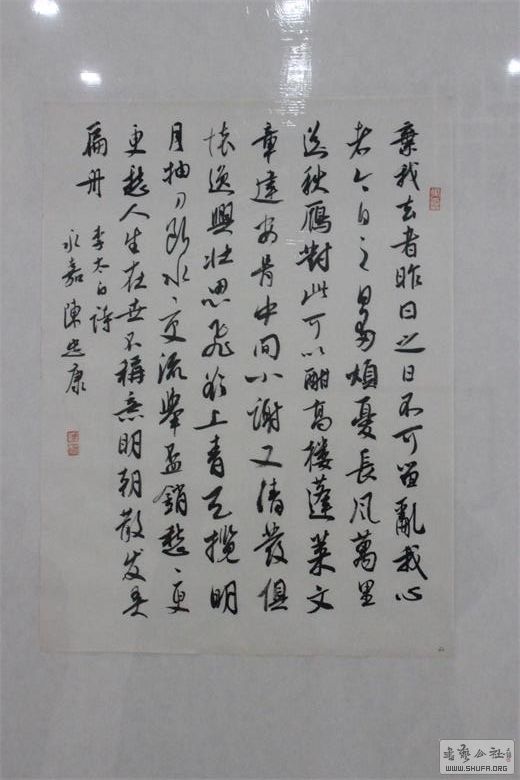 棄我去者昨日之日不可留亂我心
者今日之日多煩憂長風萬里
送秋鴈對此可以酣高樓蓬萊文
章建安骨中間小謝又清發俱
懷逸興壯思飛欲上青天攬明
月抽刀断水〻更流舉盃銷愁〻更
更愁人生在世不稱意明朝散发弄
扁舟 李太白詩
永嘉陳忠康
書藝公社
WWW.SHUFA.ORG